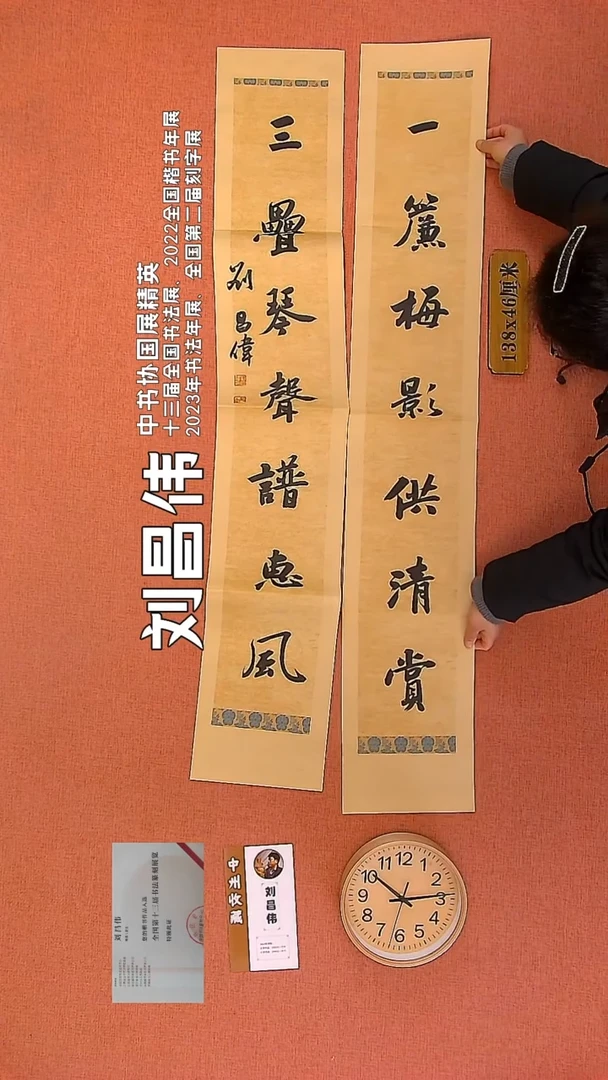 一簾梅影供清賞
三疊琴聲譜惠風
劉昌偉
138x46厘米
刘昌伟
中书协国展精英
十三届全国书法展、2022全国楷书年展
2023年书法年展、全国第二届刻字展
刘昌伟
刘昌伟
全国第十三届书法篆刻展览
特颁此证
12
1
2
3
4
5
6
7
8
9
10
11